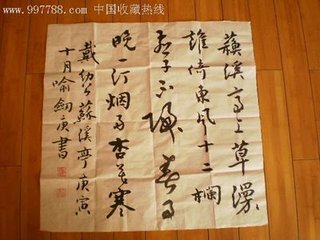 www.997788.com 中国收藏热线
蘇溪亭上草漫
誰倚東風十二欄
燕子不歸春事
晚一汀烟雨杏花寒
戴幼公蘇溪亭庚寅
十月喻劍庚書